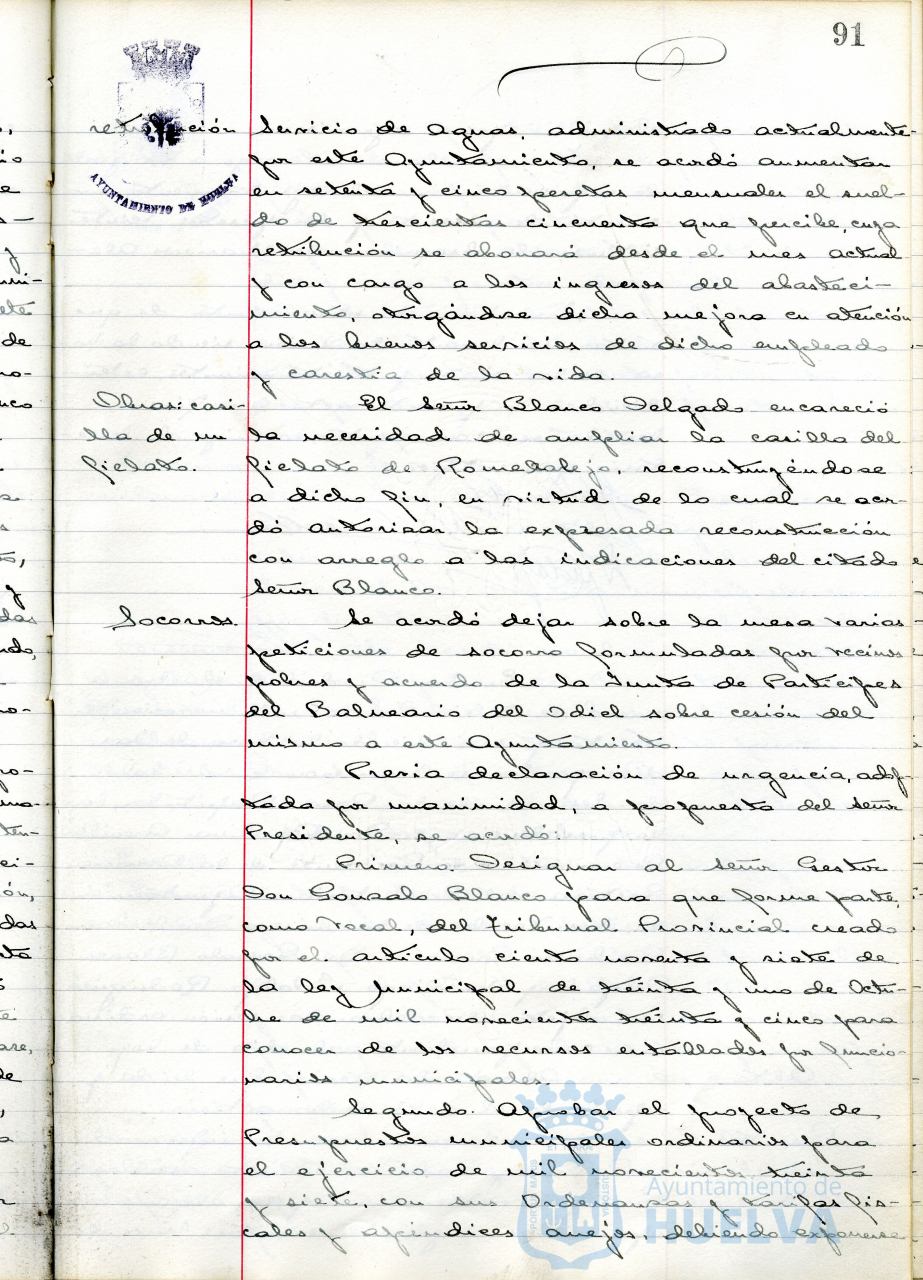 91
AYUNTAMIENTO DE HUELVA
retribución
Servicio de Aguas, administrado actualmente
por este Ayuntamiento, se acordó aumentar
en setenta y cinco pesetas mensuales el suel-
do de trescientas cincuenta que percibe, cuya
retribución se abonará desde el mes actual
y con cargo a los ingresos del abasteci-
miento, otorgándose dicha mejora en atención
a los buenos servicios de dicho empleado
y carestia de la vida.
Obras: casi-
lla de un
fielato.
El Señor Blanco Delgado encareció
la necesidad de ampliar la casilla del
fielato de Romeralejo, reconstruyéndose
a dicho fin, en virtud de lo cual se acor-
dó autorizar la expresada reconstrucción
con arreglo a las indicaciones del citado
Señor Blanco.
Socorros.
Se acordó dejar sobre la mesa varias
peticiones de socorro formuladas por vecinos
pobres y acuerdo de la Junta de Partícipes
del Balneario del Odiel sobre cesión del
mismo a este Ayuntamiento.
Previa declaración de urgencia, adop-
tada por unanimidad, a propuesta del Señor
Presidente, se acordó:
Primero. Designar al Señor Gestor
Don Gonzalo Blanco para que forme parte,
como Vocal, del Tribunal Provincial creado
por el artículo ciento noventa y siete de
la ley Municipal de treinta y uno de Octu-
bre de mil novecientos treinta y cinco para
conocer de los recursos entablados por funcio-
narios municipales.
Segundo. Aprobar el proyecto de
Presupuestos municipales ordinarios para
el ejercicio de mil novecientos treinta
y siete, con sus Ordenanzas y tarifas fis-
cales y apéndices anejos, debiendo exponerse
Ayuntamiento de
HUELVA